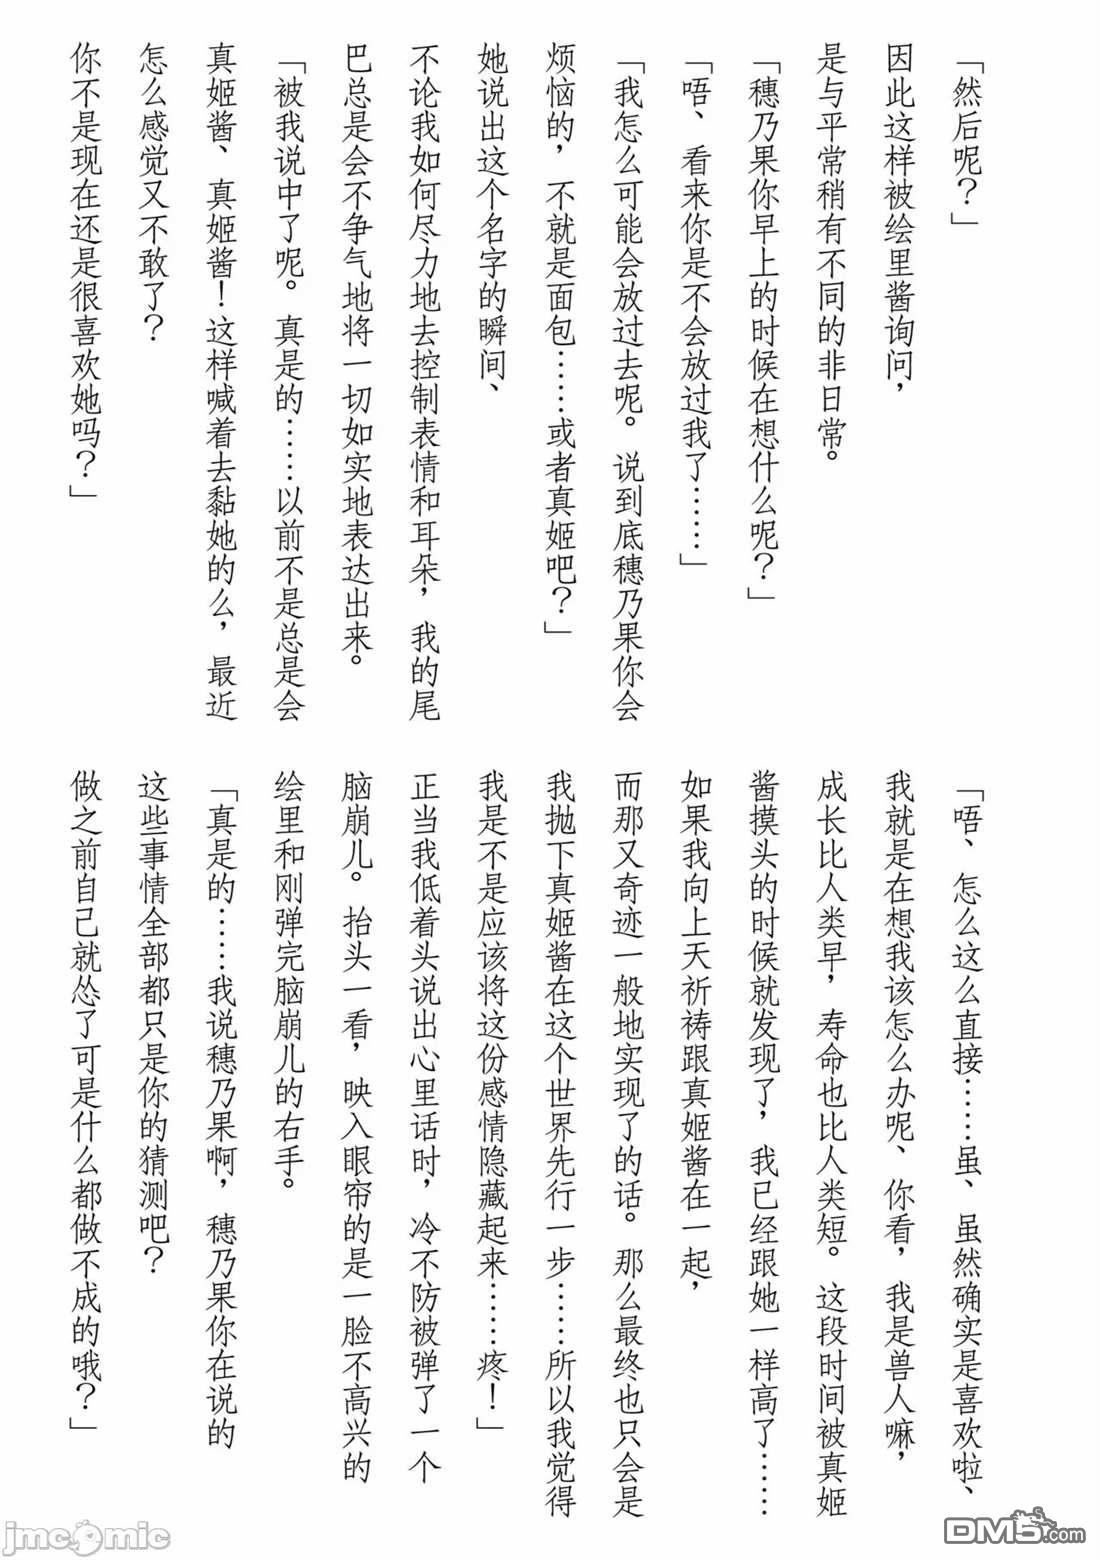 「然后呢？」
因此这样被绘里酱询问，
是与平常稍有不同的非日常。
「穗乃果你早上的时候在想什么呢？」
「唔、看来你是不会放过我了……」
「我怎么可能会放过去呢。说到底穗乃果你会
烦恼的，不就是面包……或者真姬吧？」
她说出这个名字的瞬间、
不论我如何尽力地去控制表情和耳朵，我的尾
巴总是会不争气地将一切如实地表达出来。
「被我说中了呢。真是的……以前不是总是会
真姬酱、真姬酱！这样喊着去黏她的么，最近
怎么感觉又不敢了？
你不是现在还是很喜欢她吗？」
「唔、怎么这么直接……虽、虽然确实是喜欢啦、
我就是在想我该怎么办呢、你看，我是兽人嘛，
成长比人类早，寿命也比人类短。这段时间被真姬
酱摸头的时候就发现了，我已经跟她一样高了……
如果我向上天祈祷跟真姬酱在一起，
而那又奇迹一般地实现了的话。那么最终也只会是
我抛下真姬酱在这个世界先行一步……所以我觉得
我是不是应该将这份感情隐藏起来……疼！」
正当我低着头说出心里话时，冷不防被弹了一个
脑崩儿。抬头一看，映入眼帘的是一脸不高兴的
绘里和刚弹完脑崩儿的右手。
「真是的……我说穗乃果啊，穗乃果你在说的
这些事情全部都只是你的猜测吧？
做之前自己就怂了可是什么都做不成的哦？」
jmcomic
DM5.com